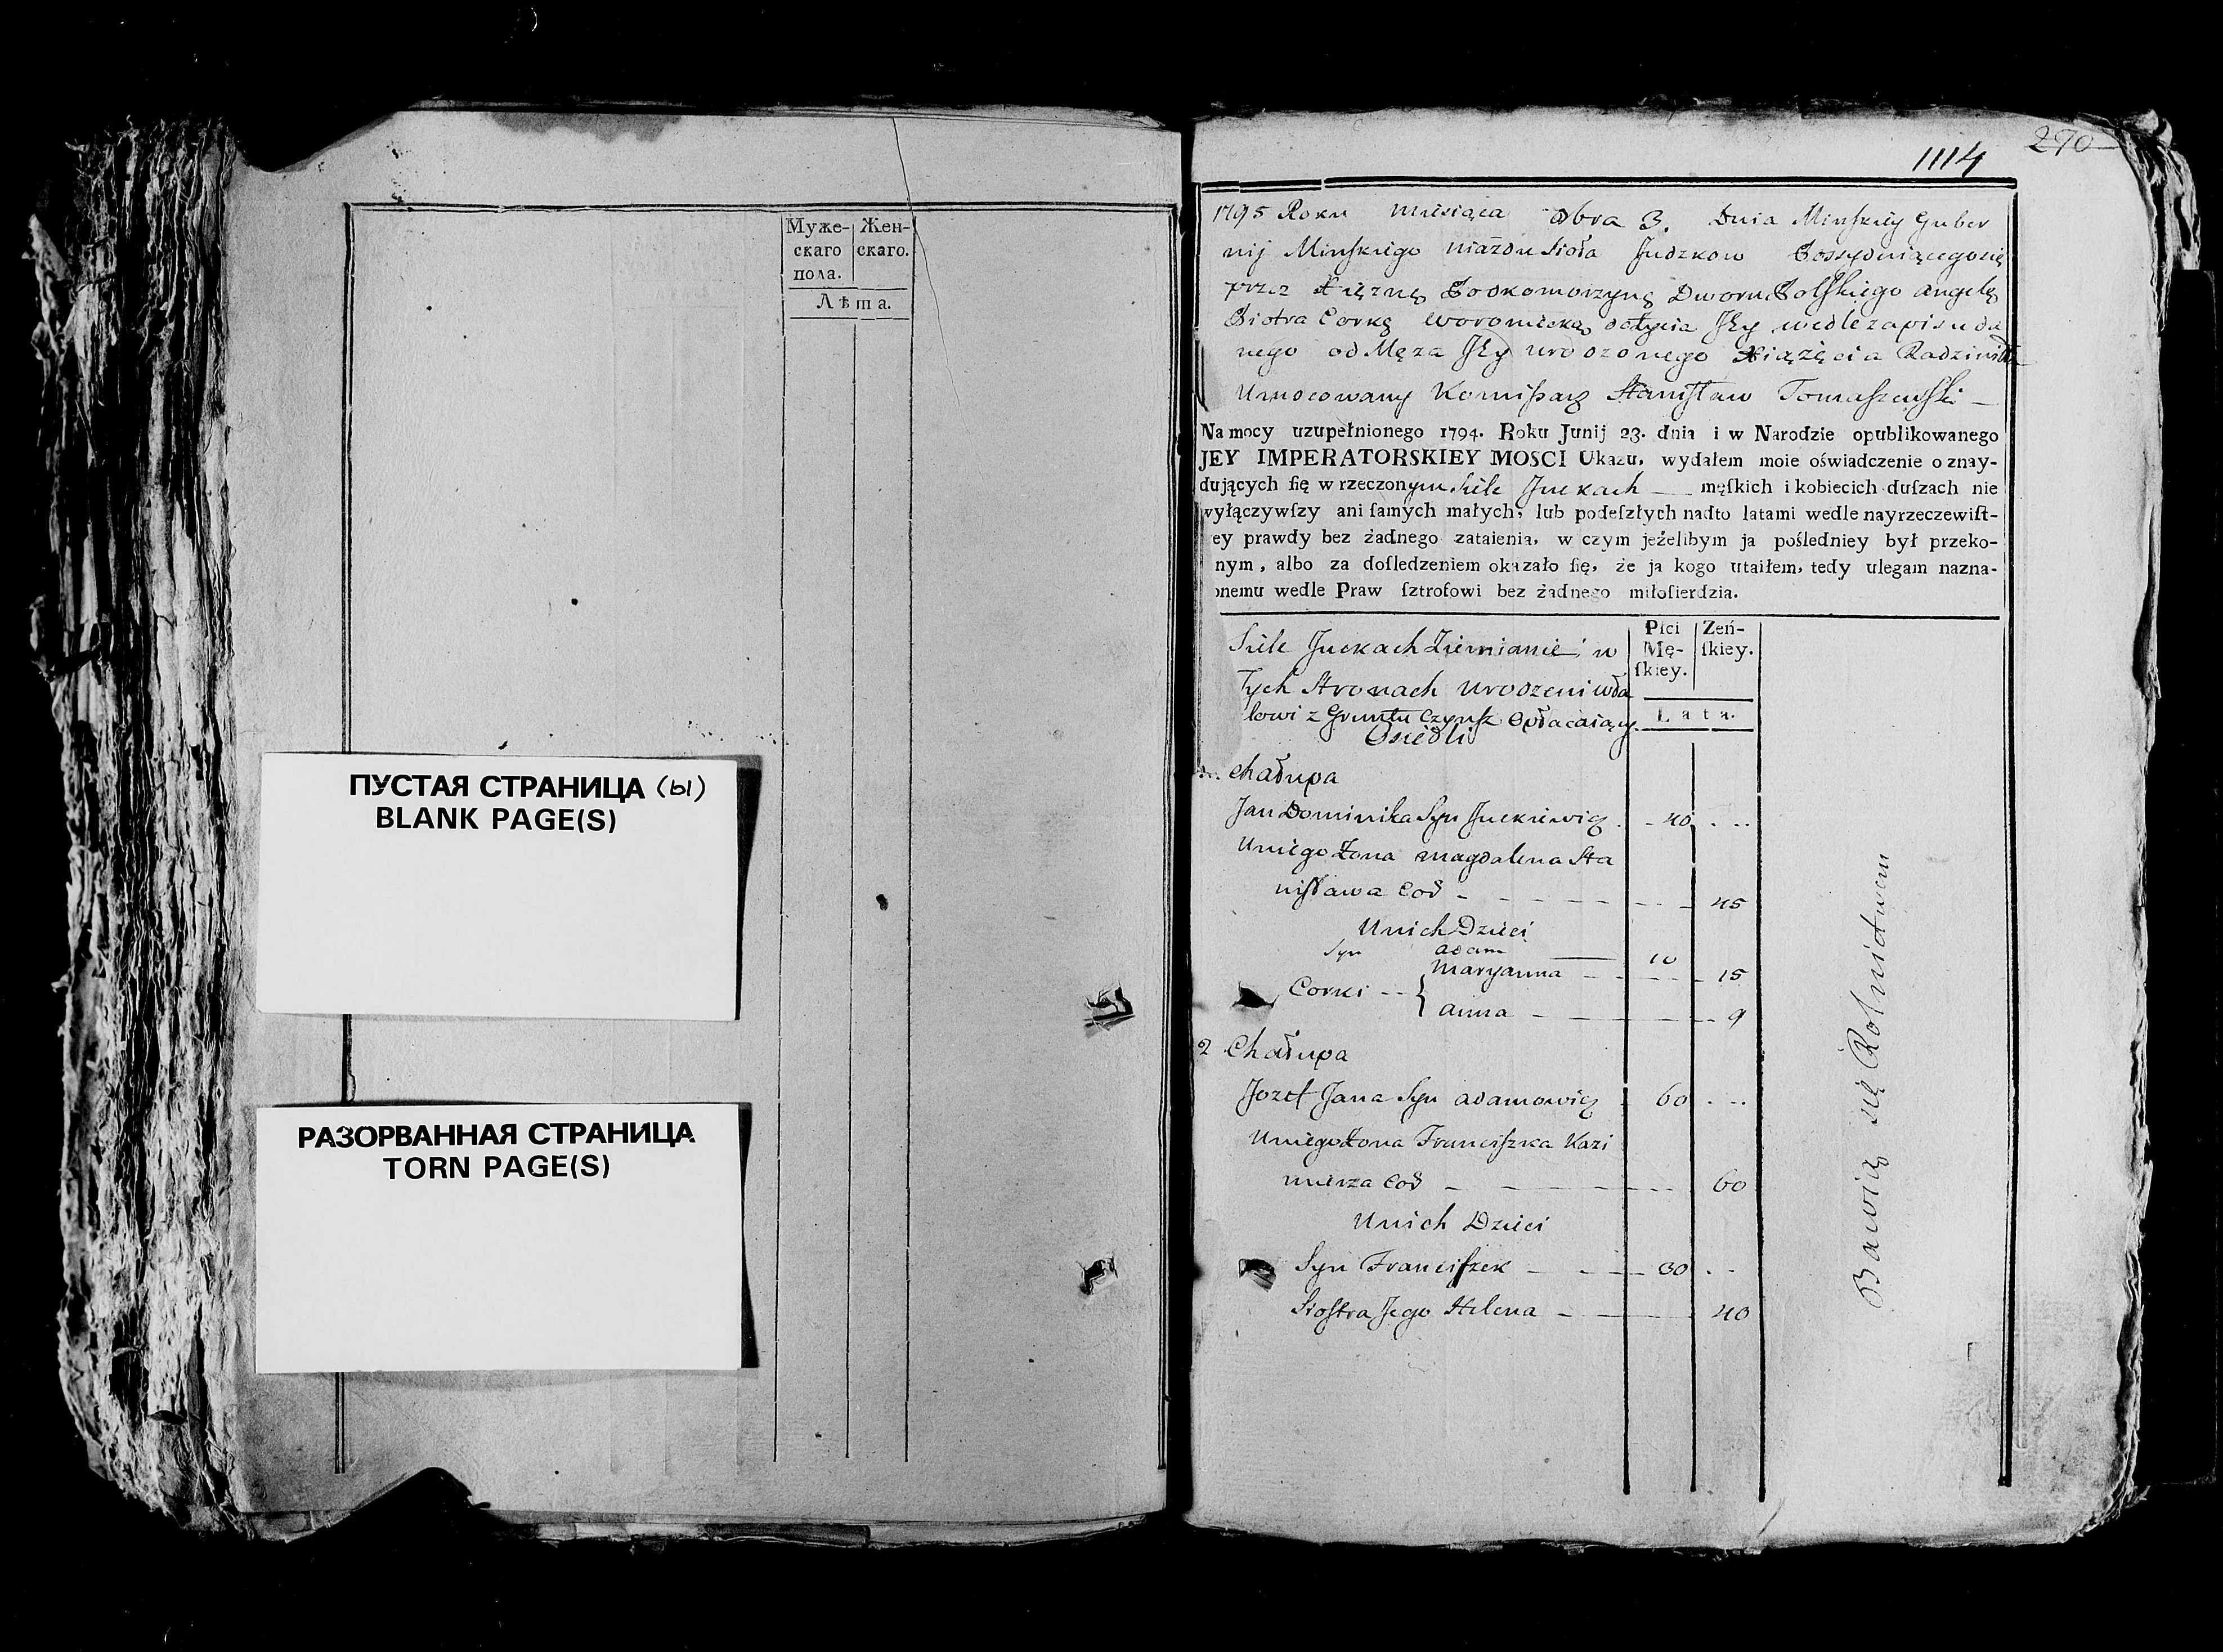 Муже-
скаго
пола.
Жен-
скаго.
Лѣта.
ПУСТАЯ СТРАНИЦА (ы)
BLANK PAGE(S)
РАЗОРВАННАЯ СТРАНИЦА
TORN PAGE(S)
270
1114
1795 Roku miesiąca 8bra 3. Dnia Minſkiey Guber
nij Minſkiego Sioła Juczkow Possyduiącego się
przez Xiężnę Podkomorzynę Dworu Polſkiego Angelę
Piotra Corkę woroniecką wedle zapisu da
nego od Męża urodzonego Xiążęcia Radziwiłła
Umocowany Komiſsarz Staniſław Tomaſzewſki —
Na mocy uzupełnionego 1794. Roku Junij 23. dnia i w Narodzie opublikowanego
JEY IMPERATORSKIEY MOSCI Ukazu, wydałem moie oświadczenie o znay-
dujących ſię w rzeczonym Siele Juckach — męſkich i kobiecich duſzach nie
wyłączywſzy ani ſamych małych, lub podeſzłych nadto latami wedle nayrzeczewiſt-
ey prawdy bez żadnego zataienia, w czym jeżelibym ja poſledniey był przeko-
nym, albo za doſledzeniem okazało ſię, że ja kogo utaiłem, tedy ulegam nazna-
onemu wedle Praw ſztrofowi bez żadnego miłoſierdzia.
Siele Juckach Ziemianie w
Tych Stronach urodzeni
z Gruntu Czynſz Opłacaiący
Osiedli
Płci
Mę-
ſkiey.
Zeń-
ſkiey.
Lata.
Chałupa
Jan Dominika Syn Juckiewicz - 40 . ...
Uniego Żona Magdalena Sta
niſława Cor - - - - 45
Unich Dzieci
Syn Adam — 10
Corki -- { Maryanna - - - 15
Anna - — 9
2 Chałupa
Jozef Jana Syn Adamowicz 60 . ...
Uniego Żona Franciſzka Kazi
mierza Cor - — - - 60
Unich Dzieci
Syn Franciſzek - - — 30 . ..
Sioſtra Jego Helena - — 40
Bawią się Rolnictwem